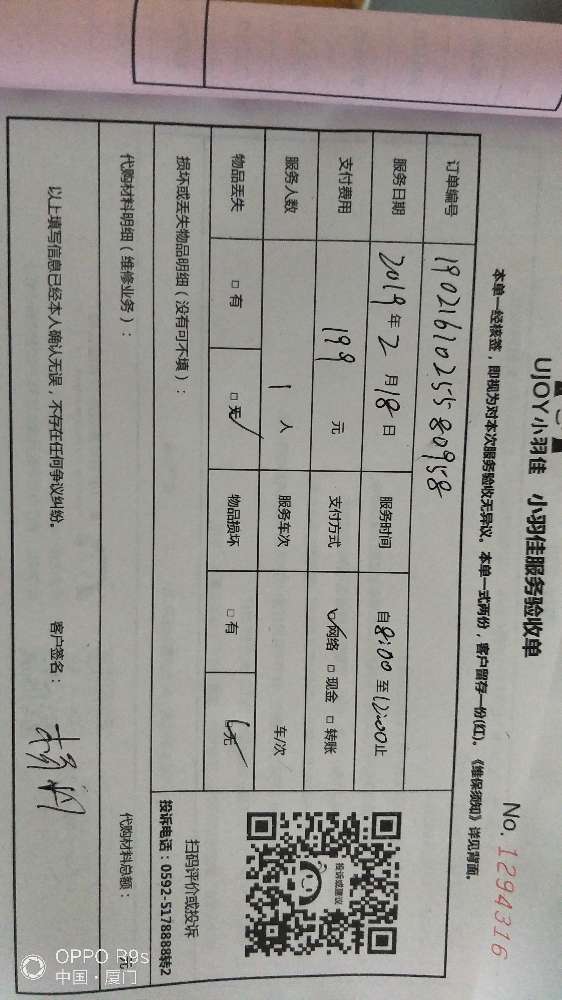 UJOY小羽佳 小羽佳服务验收单
No. 1294316
本单一经核签，即视为对本次服务验收无异议。本单一式两份，客户留存一份(红)。《维保须知》详见背面。
订单编号 19021610255580958
服务日期 2019年2月18日 服务时间 自8:00至12:00止
支付费用 199元 支付方式 ☑网络 □现金 □转账
服务人数 1人 服务车次 车/次
物品丢失 □有 ☑无 物品损坏 □有 ☑无
投诉或建议
扫码评价或投诉
投诉电话：0592-5178888转2
损坏或丢失物品明细（没有可不填）：
代购材料明细（维修业务）： 代购材料总额： 元
以上填写信息已经本人确认无误，不存在任何争议纠纷。 客户签名：
OPPO R9s
中国·厦门